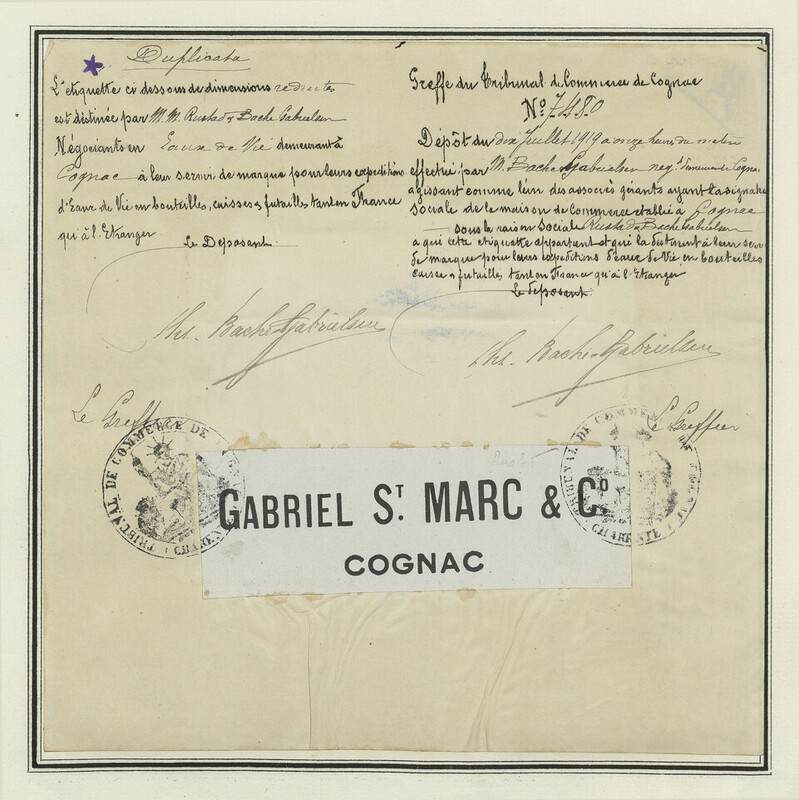 Duplicata
L'étiquette ci dessous de dimensions réduites
est distinée par M.M. Rustad & Bache Gabrielsen
Négociants en Eaux de Vie demeurant à
Cognac à leur servir de marque pour leurs expéditions
d'Eaux de Vie en bouteilles, caisses & futailles tant en France
qu'à l'Etranger
Le Déposant
Ths. Bache-Gabrielsen
Le Greffier
Greffe du Tribunal de Commerce de Cognac
No 7480
Dépôt du dix Juillet 1919 à onze heure du matin
effectué par M. Bache Gabrielsen negt demeurant Cognac
agissant comme l'un des associés gérants ayant la signature
sociale de la maison de Commerce établie à Cognac
sous la raison sociale Rustad & Bache Gabrielsen
à qui cette etiquette appartient et qui la destinent à leur servir
de marque pour leurs expéditions d'eaux de Vie en bouteilles
caisses & futailles tant en France qu'à l'Etranger
Le déposant
Ths. Bache-Gabrielsen
Le Greffier
TRIBUNAL DE COMMERCE DE
CHAREN
TRIBUNAL DE COMM
CHARENTE
GABRIEL ST. MARC & CO
COGNAC